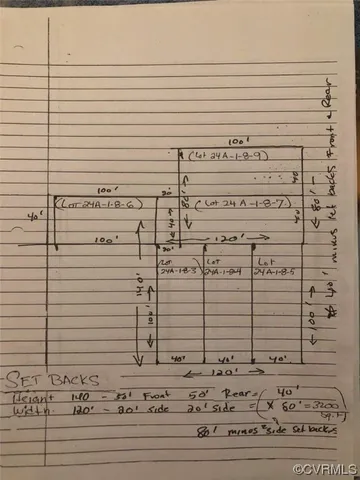 100'
(Lot 24A-1-8-9)
100'
20'
40
← 80' →
40'
(Lot 24A-1-8-6)
(Lot 24A-1-8-7)
40
← 80' →
minus set backs Front & Rear
100'
← 120' →
20'
140'
(Lot 24A-1-8-3)
Lot 24A-1-8-4
Lot 24A-1-8-5
← 100' →
← 100' →
40'
40'
40'
40'
← 120' →
SET BACKS
Height 140 - 50' Front 50' Rear = 40'
Width: 120' - 20' side 20' side = X 80' = 3200 sq. ft
80' minus 2 side set backs
©CVRMLS